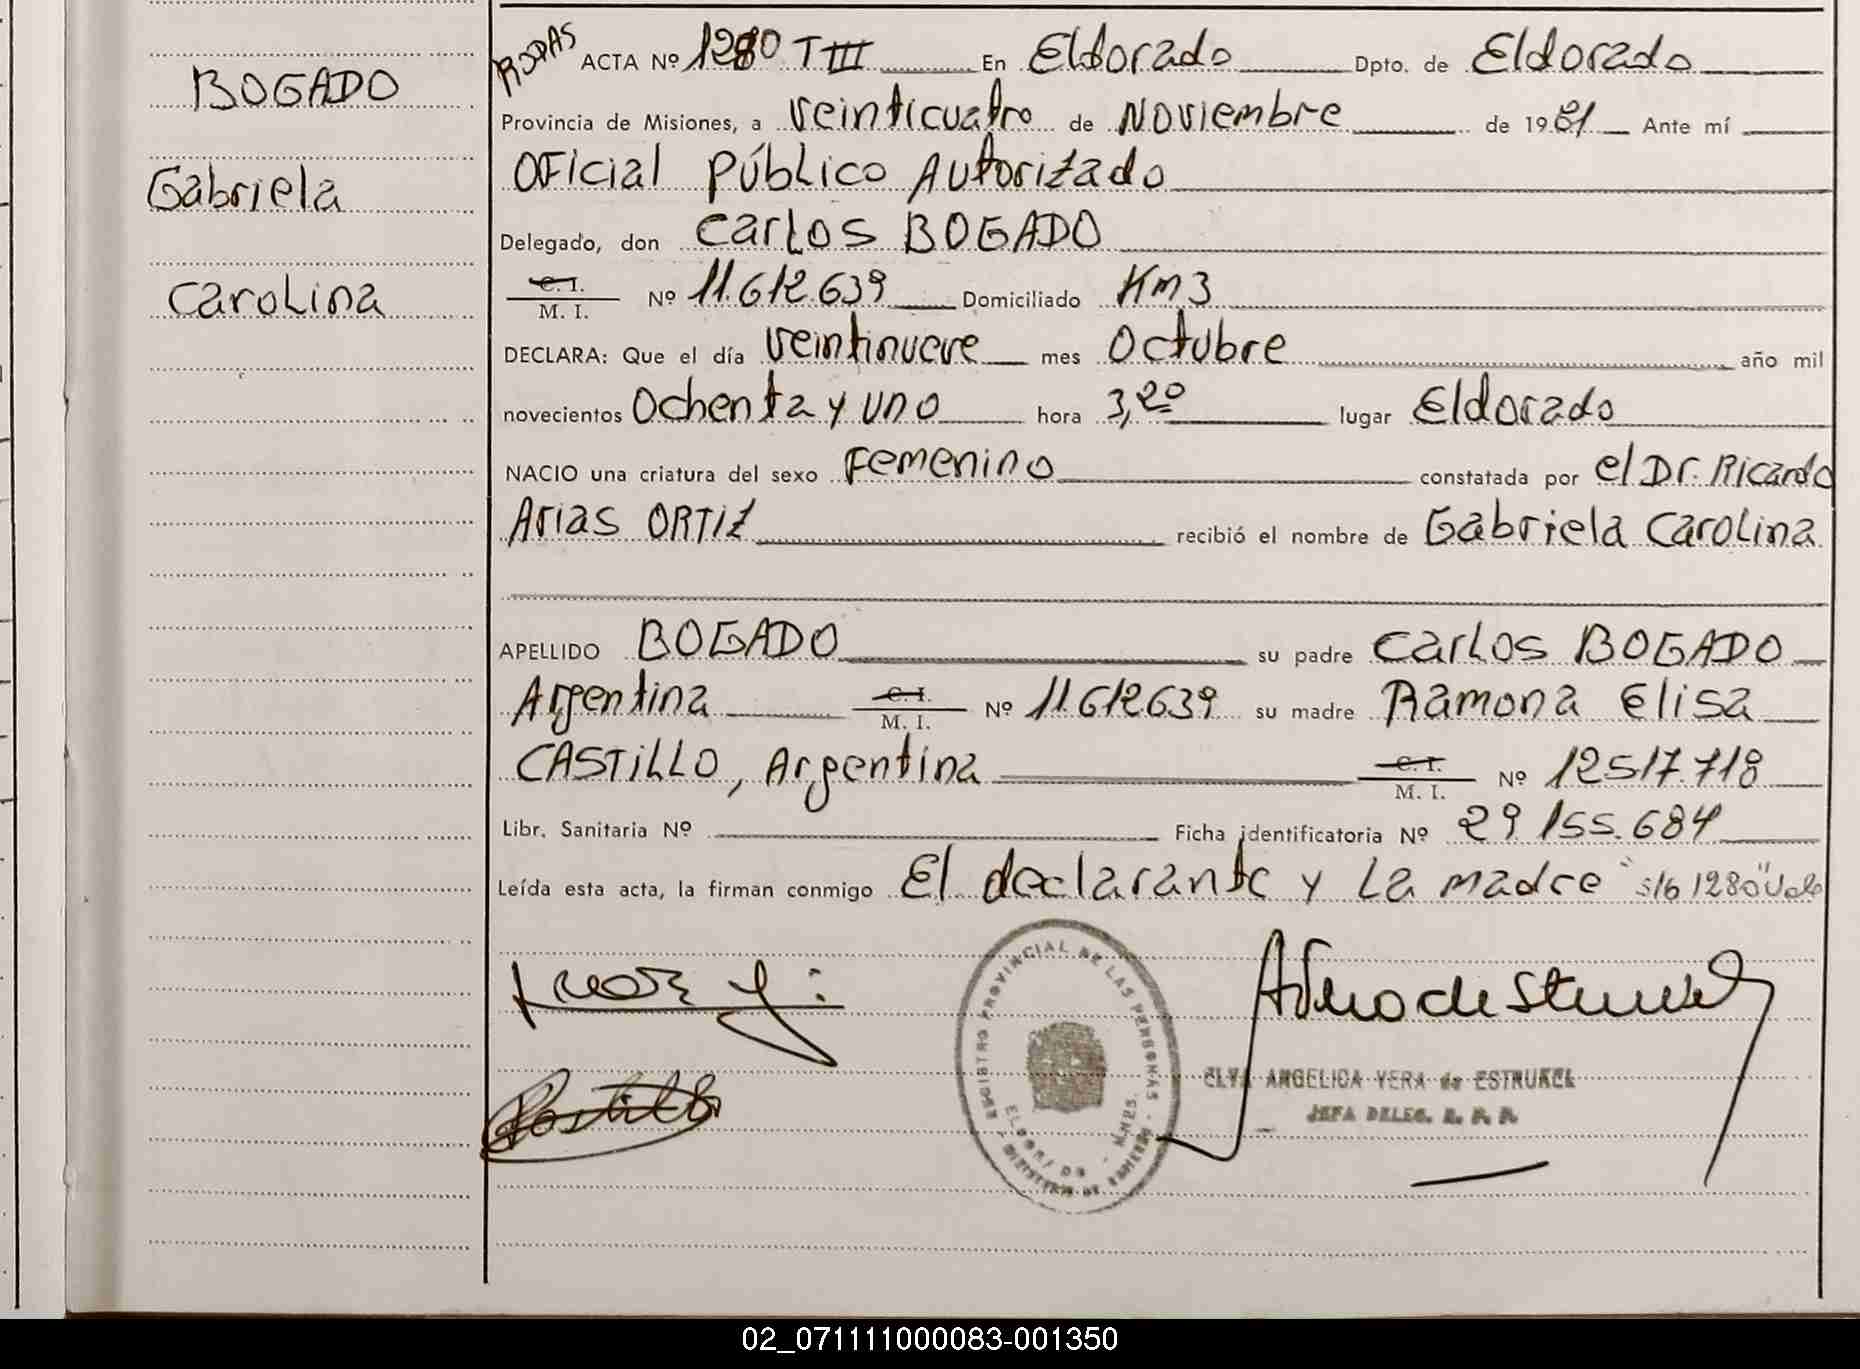 BOGADO
Gabriela
Carolina
RODAS ACTA Nº 1280 T III En Eldorado Dpto. de Eldorado
Provincia de Misiones, a veinticuatro de Noviembre de 1981 Ante mí
Oficial Público Autorizado
Delegado, don Carlos BOGADO
C. I.
M. I. Nº 11.612.639 Domiciliado Km 3
DECLARA: Que el día veintinueve mes Octubre año mil
novecientos Ochenta y uno hora 3,20 lugar Eldorado
NACIO una criatura del sexo Femenino constatada por el Dr. Ricardo
Arias ORTIZ recibió el nombre de Gabriela Carolina
APELLIDO BOGADO su padre Carlos BOGADO
Argentina C. I.
M. I. Nº 11.612.639 su madre Ramona Elisa
CASTILLO, Argentina C. I.
M. I. Nº 12517.718
Libr. Sanitaria Nº Ficha identificatoria Nº 29.155.684
Leída esta acta, la firman conmigo El declarante y La madre "s/b 1280" Vale
REGISTRO PROVINCIAL DE LAS PERSONAS
ELDORADO - MNES.
MINISTERIO DE GOBIERNO
ELVA ANGELICA VERA de ESTRUKEL
JEFA DELEG. R. P. P.
02_071111000083-001350